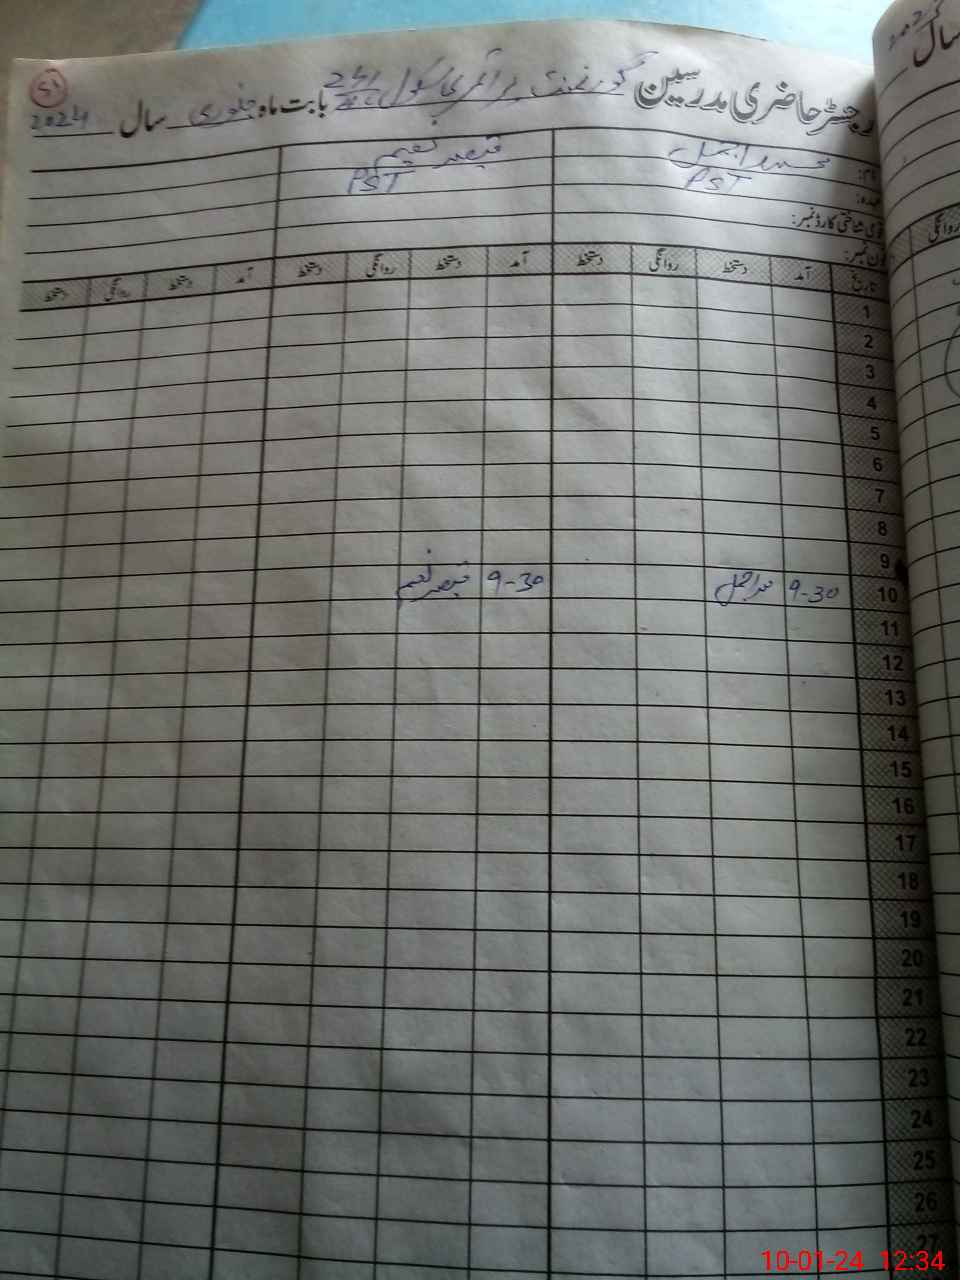 رجسٹر حاضری مدرسین گورنمنٹ پرائمری سکول 241 بابت ماہ جنوری سال 2024
51
نام: محمد اجمل قیصر نعیم
عہدہ: PST PST
قومی شناختی کارڈ نمبر:
فون نمبر:
تاریخ آمد دستخط روانگی دستخط آمد دستخط روانگی دستخط آمد دستخط روانگی دستخط
1
2
3
4
5
6
7
8
9
10 9-30 محمد اجمل 9-30 قیصر نعیم
11
12
13
14
15
16
17
18
19
20
21
22
23
24
25
26
27
سال
روانگی
10-01-24 12:34